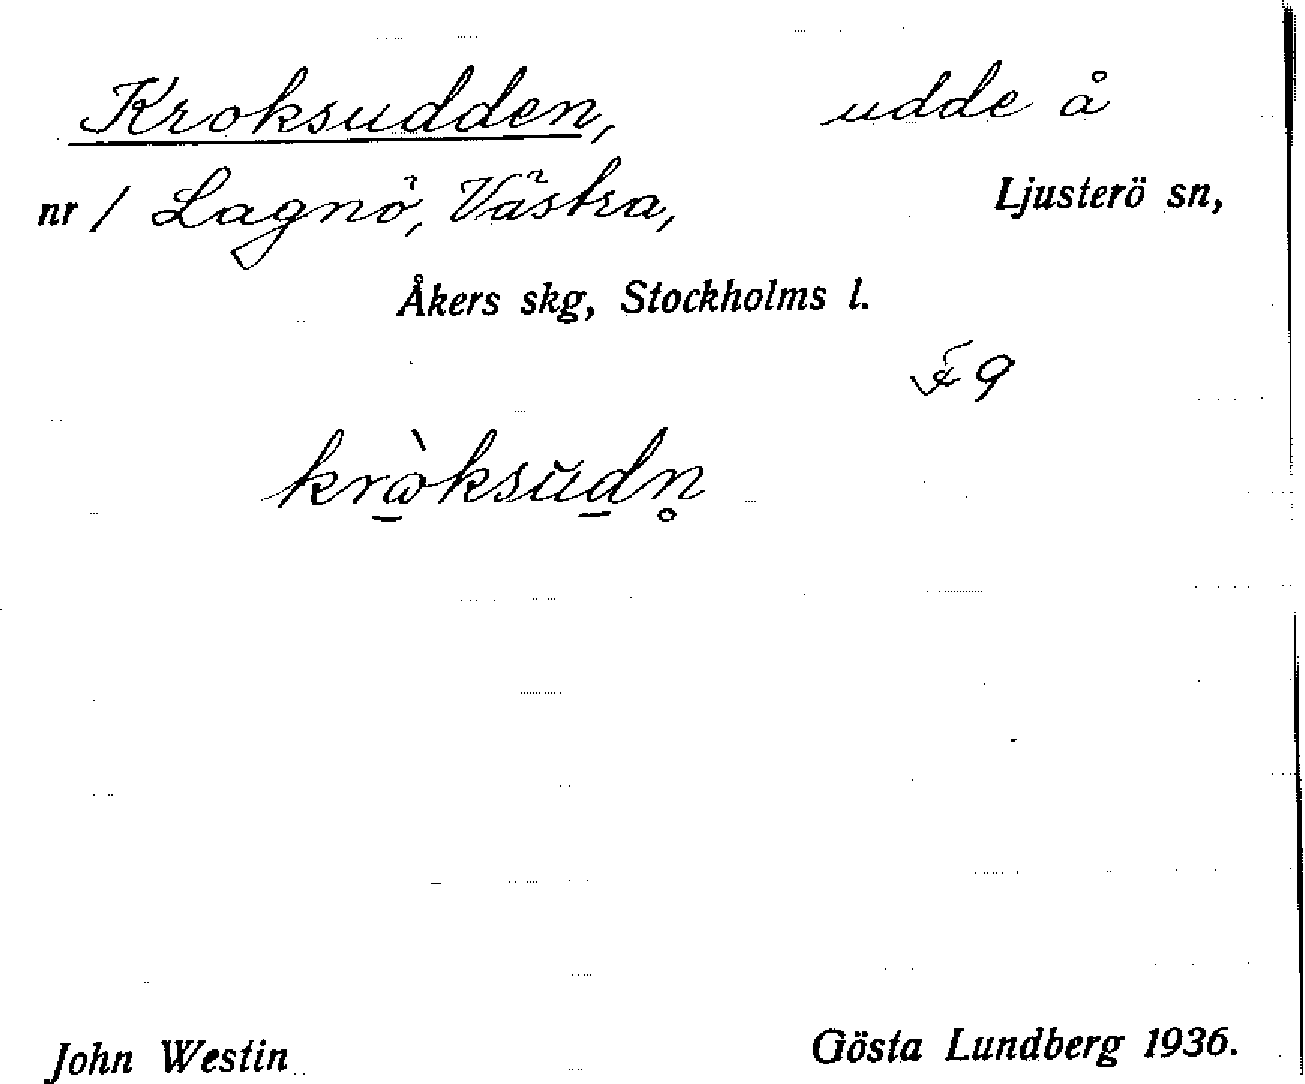 Kroksudden, udde å
nr 1 Lagnö, Västra, Ljusterö sn,
Åkers skg, Stockholms l.
F 9
kròksŭdn̥
John Westin Gösta Lundberg 1936.